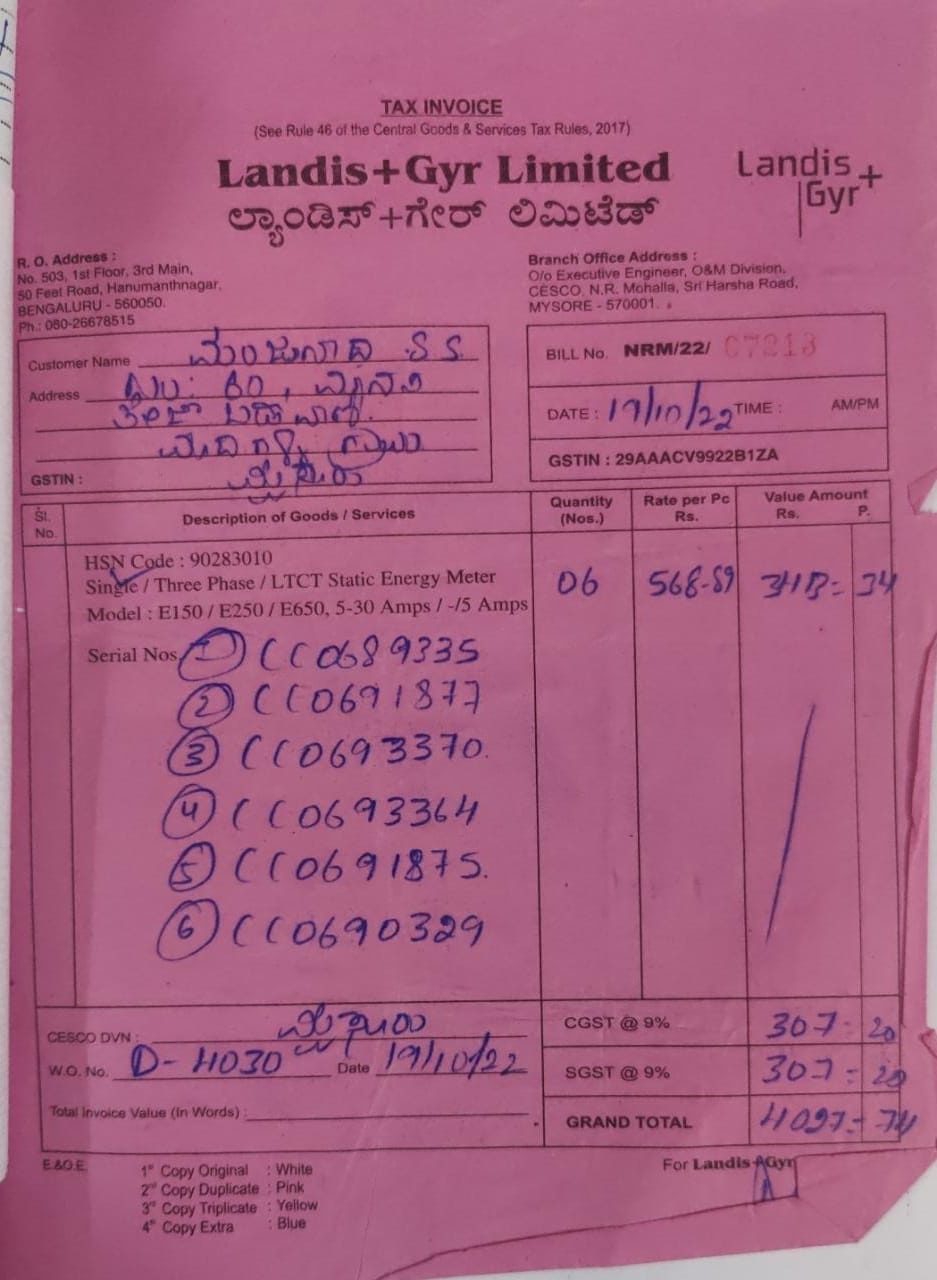 TAX INVOICE
(See Rule 46 of the Central Goods & Services Tax Rules, 2017)
Landis+Gyr Limited
ಲ್ಯಾಂಡಿಸ್+ಗೇರ್ ಲಿಮಿಟೆಡ್
Landis+
Gyr
R. O. Address :
No. 503, 1st Floor, 3rd Main,
50 Feet Road, Hanumanthnagar,
BENGALURU - 560050.
Ph.: 080-26678515
Branch Office Address :
O/o Executive Engineer, O&M Division,
CESCO, N.R. Mohalla, Sri Harsha Road,
MYSORE - 570001.
Customer Name
Address
GSTIN :
BILL No. NRM/22/ 07213
DATE : 19/10/22 TIME : AM/PM
GSTIN : 29AAACV9922B1ZA
Sl. No. Description of Goods / Services Quantity (Nos.) Rate per Pc Rs. Value Amount Rs. P.
HSN Code : 90283010
Single / Three Phase / LTCT Static Energy Meter 06 568-89 3413= 34
Model : E150 / E250 / E650, 5-30 Amps / -/5 Amps
Serial Nos. 1 CC0689335
2 CC0691877
3 CC0693370.
4 CC0693364
5 CC0691875.
6 CC0690329
CESCO DVN :
W.O. No. D-4030 Date 19/10/22
Total Invoice Value (In Words) :
CGST @ 9% 307- 20
SGST @ 9% 307= 20
GRAND TOTAL 4027= 74
E.&O.E.
1st Copy Original : White
2nd Copy Duplicate : Pink
3rd Copy Triplicate : Yellow
4th Copy Extra : Blue
For Landis+Gyr